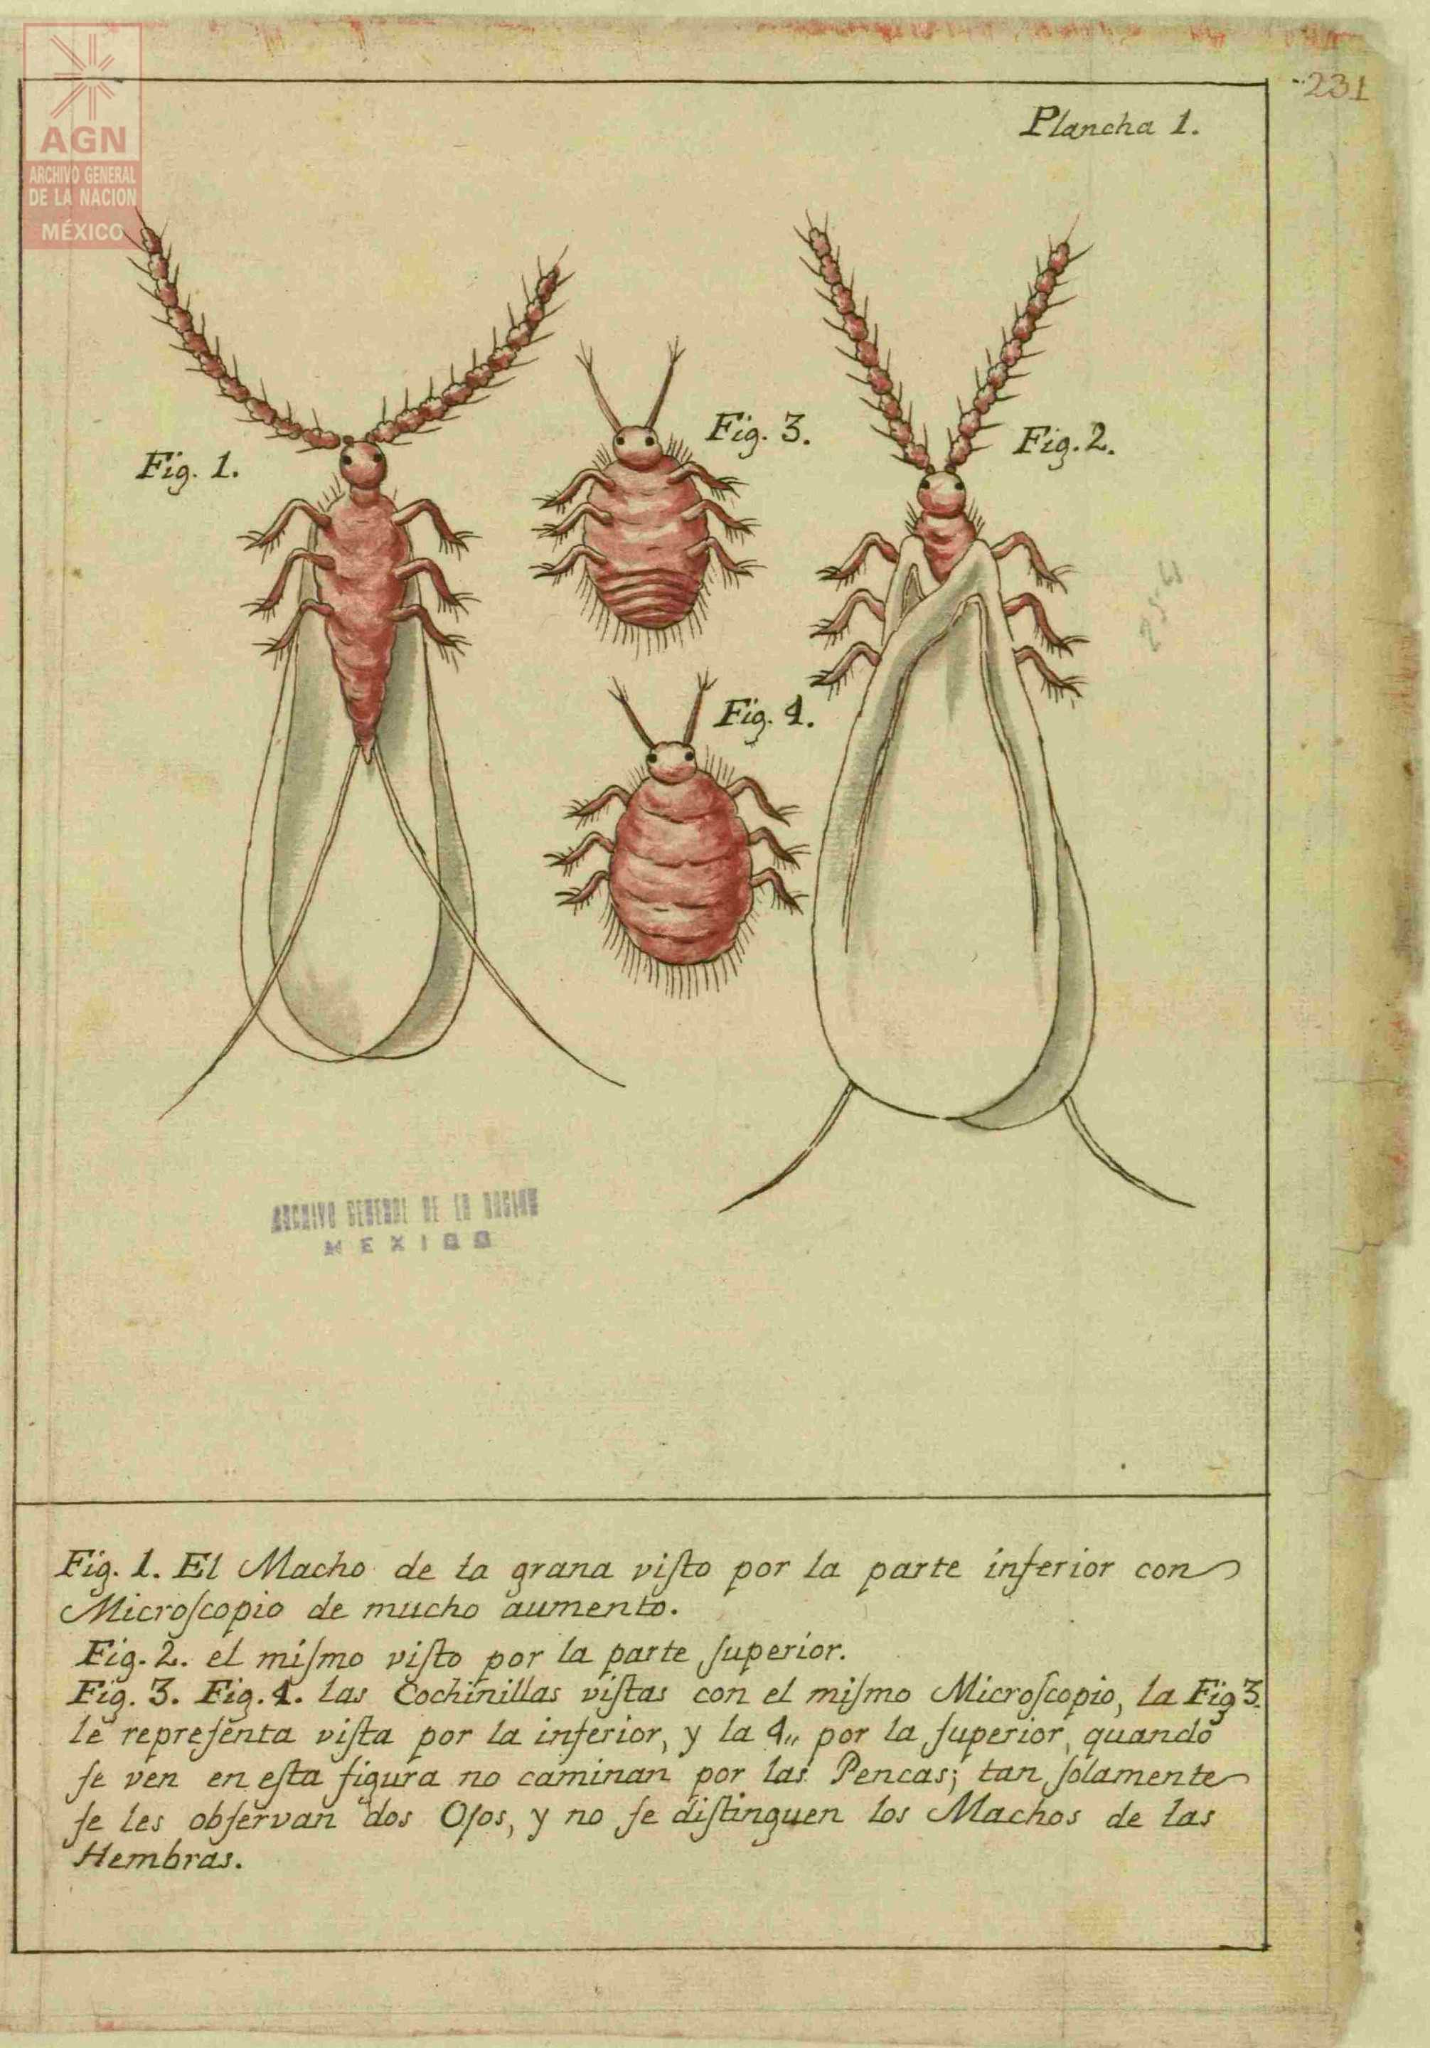 231
AGN
ARCHIVO GENERAL
DE LA NACION
MÉXICO
Plancha 1.
Fig. 1.
Fig. 3.
Fig. 2.
Fig. 4.
ARCHIVO GENERAL DE LA NACION
MEXICO
Fig. 1. El Macho de la grana viſto por la parte inferior con
Microſcopio de mucho aumento.
Fig. 2. el miſmo viſto por la parte ſuperior.
Fig. 3. Fig. 4. las Cochinillas viſtas con el miſmo Microſcopio, la Fig 3.
ſe repreſenta viſta por la inferior, y la 4,, por la ſuperior, quando
ſe ven en eſta figura no caminan por las Pencas; tan ſolamente
ſe les obſervan dos Ojos, y no ſe diſtinguen los Machos de las
Hembras.